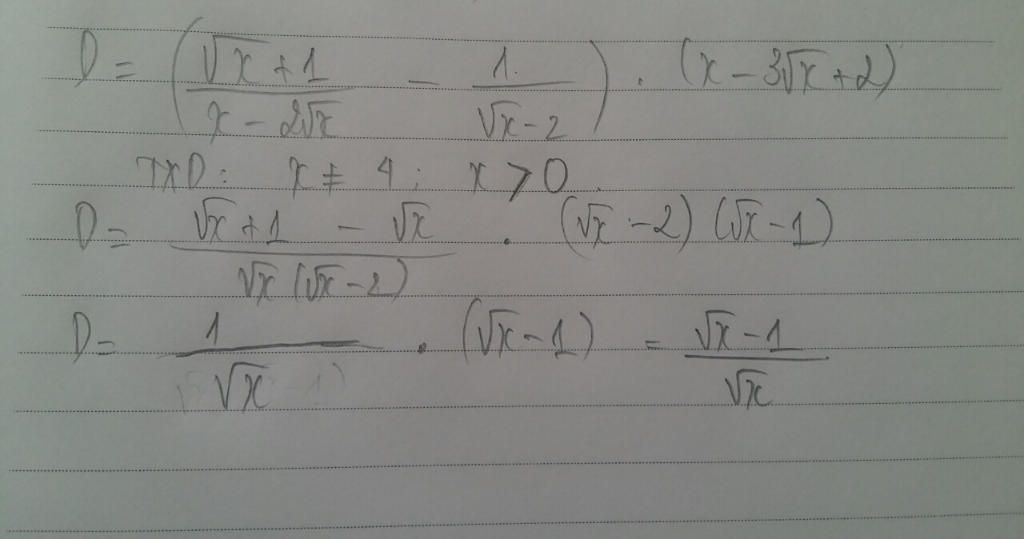 D = ( (√x + 1)/(x - 2√x) - 1/(√x - 2) ) . (x - 3√x + 2)
TXD : x ≠ 4 ; x > 0 .
D = (√x + 1 - √x)/(√x (√x - 2)) . (√x - 2) (√x - 1)
D = 1/√x . (√x - 1) = (√x - 1)/√x